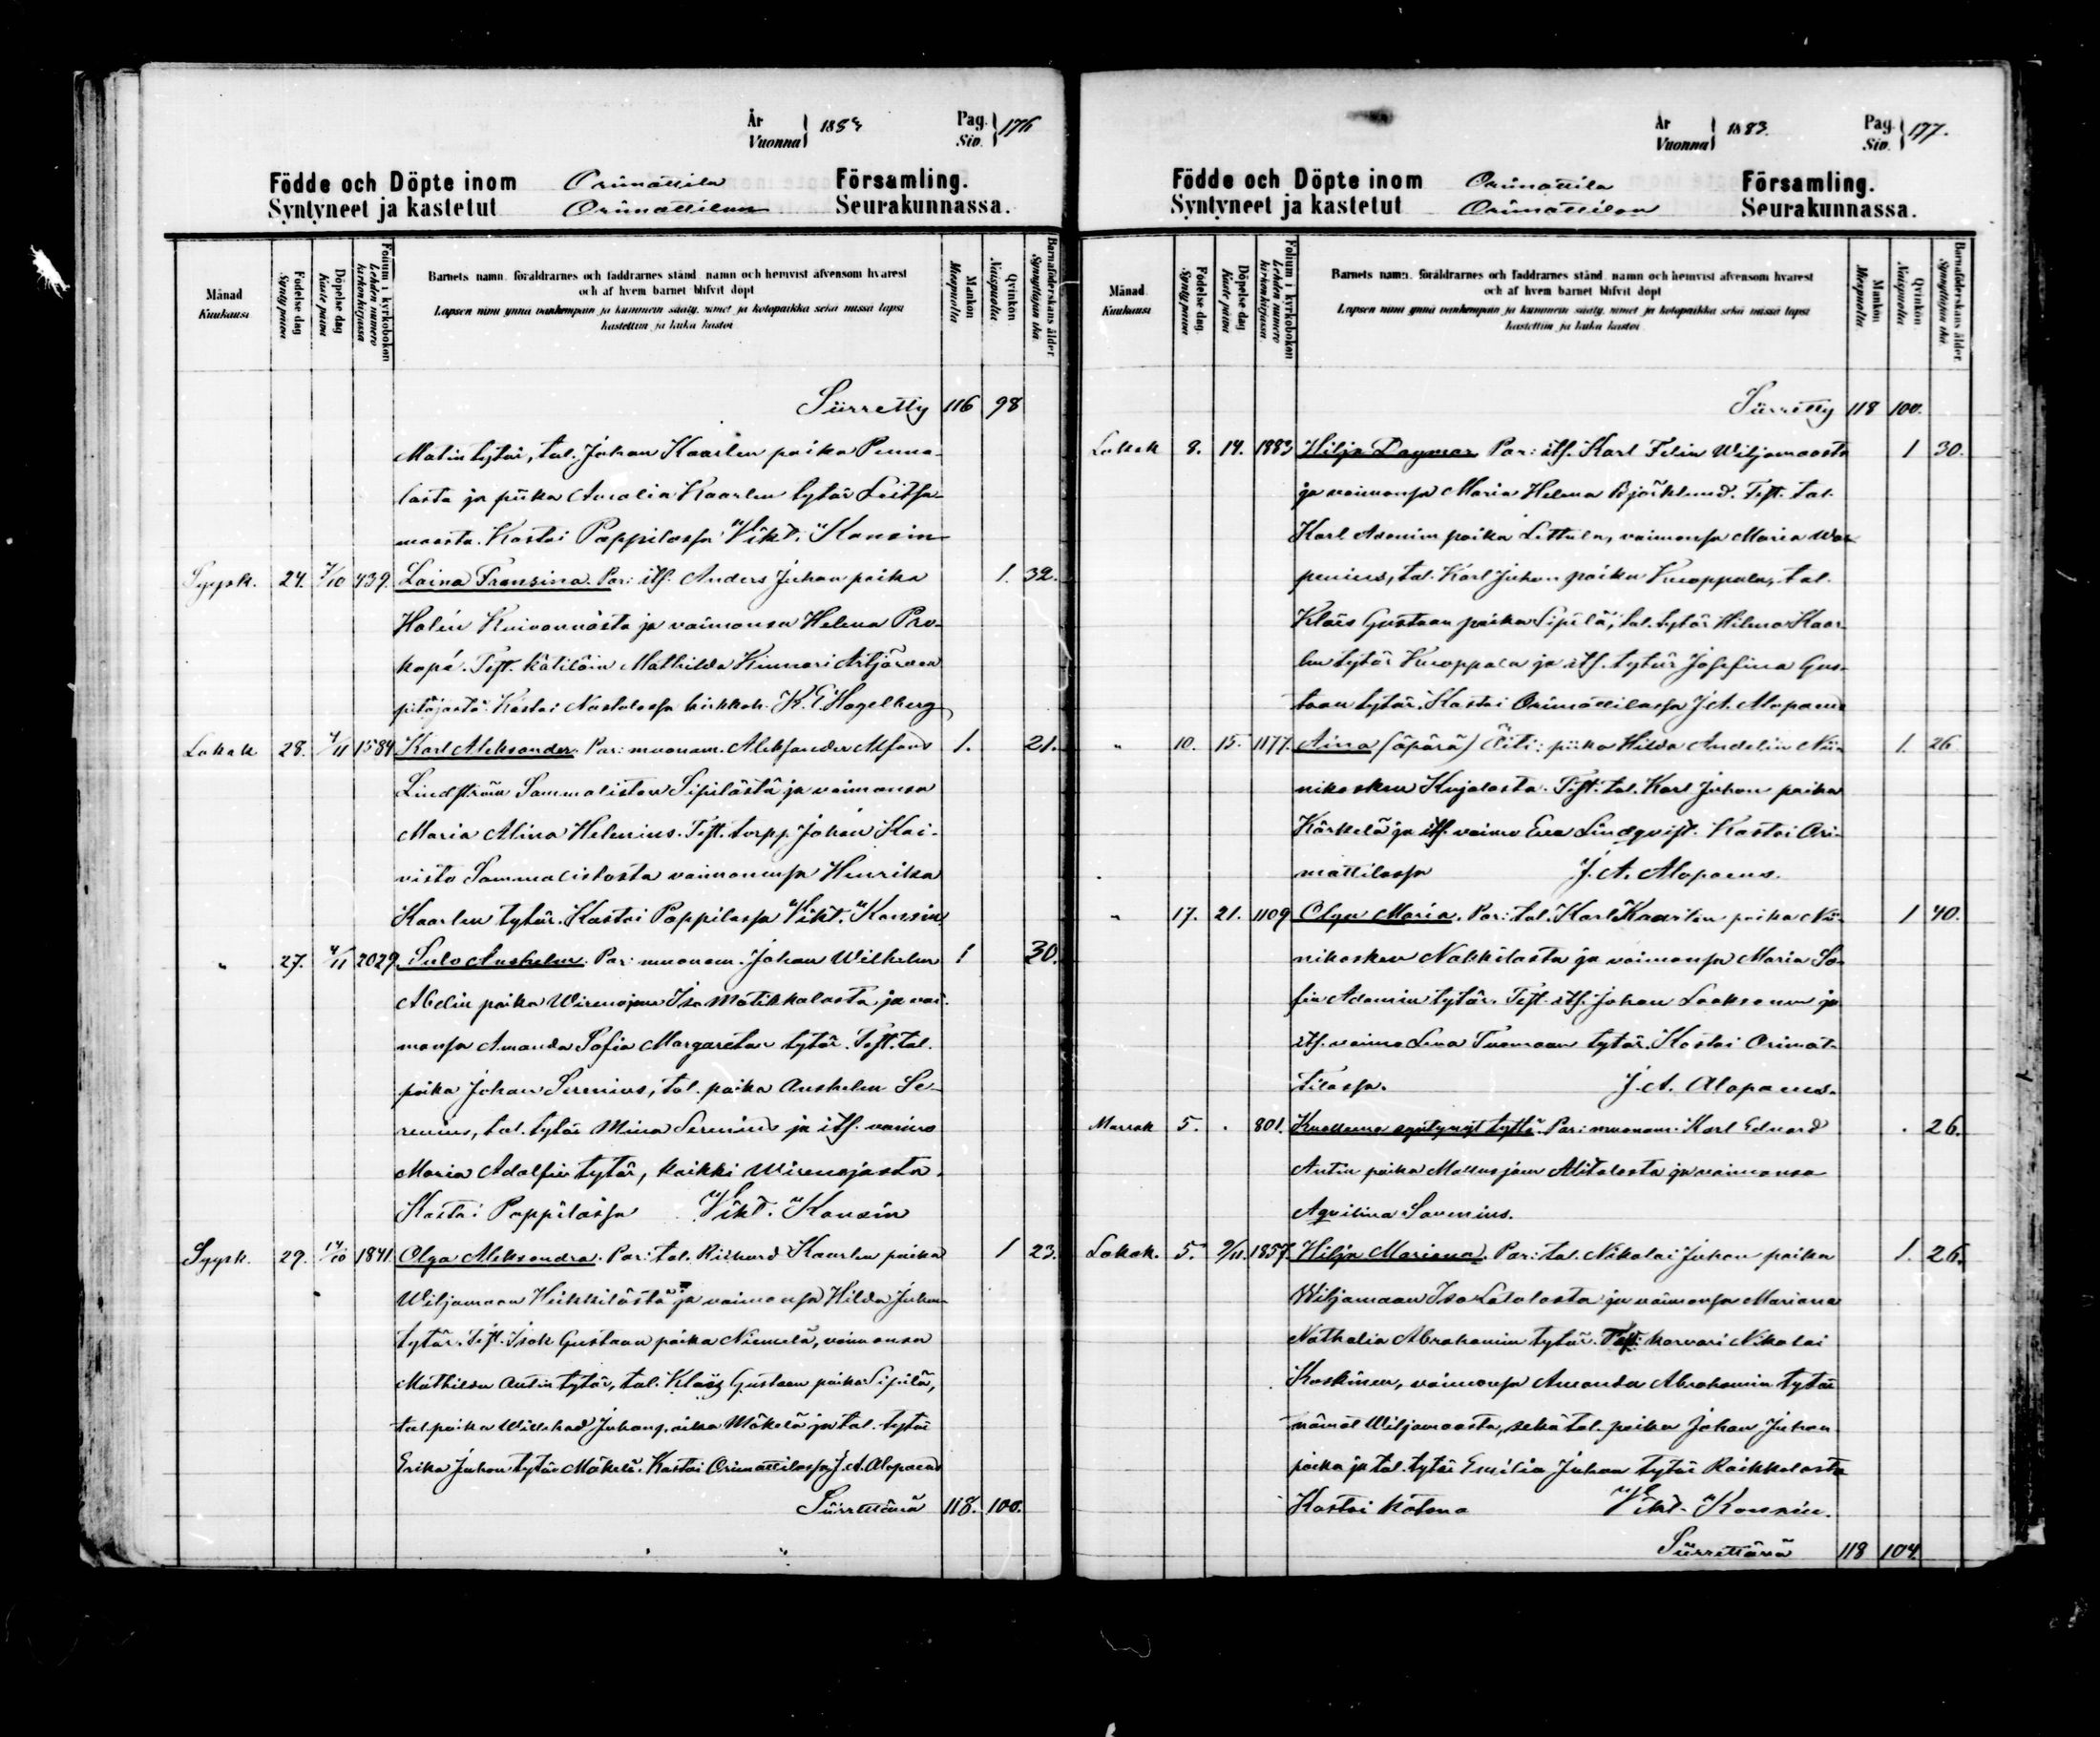 År
Vuonna 1883
Pag.
Siv. 176
Födde och Döpte inom Orimattila Församling.
Syntyneet ja kastetut Orimattilan Seurakunnassa.
Månad
Kuukausi
Födelse dag
Synty päivä
Döpelse dag
Kaste päivä
Folium i kyrkoboken
Lehden numero kirkonkirjassa
Barnets namn, föräldrarnes och faddrarnes stånd, namn och hemvist äfvensom hvarest
och af hvem barnet blifvit döpt
Lapsen nimi ynnä vanhempain ja kummein sääty, nimet ja kotopaikka sekä missä lapsi
kastettiin ja kuka kastoi
Mankön
Miespuolia
Qvinkön
Naispuolia
Barnaföderskans ålder.
Synnyttäjän ikä.
Siirretty 116 98
Matin tytär, tal. Johan Kaarlen poika Penna-
lasta ja piika Amalia Kaarlen tytär Leitsa-
maasta. Kastoi Pappilassa Vikt. Konsin
Syysk. 24. 7/10 439. Laina Fransina. Par: itf. Anders Juhan poika 1. 32.
Holén Kuivannosta ja vaimonsa Helena Pro-
kopé. Test. kätilöin Mathilda Kinnari Artjärven
pitäjästä. Kastoi Nastolassa kirkkoh. K. E. Hagelberg
Lokak 28. 4/11 1584 Karl Aleksander. Par: muonam. Aleksander Alfons 1. 21.
Lindström Sammaliston Sipilästä ja vaimonsa
Maria Alina Helenius. Test. torpp. Johan Koi-
visto Sammalistosta vaimonensa Henrika
Kaarlen tytär. Kastoi Pappilassa Vikt. Konsin
" 27. 4/11 2029 Sulo Anshelm. Par: muonam. Johan Wilhelm 1 30.
Abelin poika Wirenojan Iso Matikkalasta ja vai-
monsa Amanda Sofia Margaretan tytär. Test. tal.
poika Johan Serenius, tal. poika Anshelm Se-
renius, tal. tytär Mina Serenius ja itf. vaimo
Maria Adolfin tytär, kaikki Wirenojasta.
Kastoi Pappilassa Vikt. Konsin
Syysk. 29. 14/10 1841 Olga Aleksandra. Par: tal. Rickard Kaarlen poika 1 23.
Wiljamaan Heikkilästä ja vaimonsa Hilda Juhan
tytär. Test. Isak Gustaan poika Niemelä, vaimonsa
Mathilda Antin tytär, tal. Klas Gustaan poika Sipilä,
tal. poika Willehad Juhan poika Mäkelä ja tal. tytär
Erika Juhan tytär Mäkelä. Kastoi Orimattilassa J. A. Alopaeus
Siirrettävä 118. 100.
År
Vuonna 1883.
Pag.
Siv. 177.
Födde och Döpte inom Orimattila Församling.
Syntyneet ja kastetut Orimattilan Seurakunnassa.
Månad
Kuukausi
Födelse dag
Synty päivä
Döpelse dag
Kaste päivä
Folium i kyrkoboken
Lehden numero kirkonkirjassa.
Barnets namn, föräldrarnes och faddrarnes stånd, namn och hemvist äfvensom hvarest
och af hvem barnet blifvit döpt
Lapsen nimi ynnä vanhempain ja kummein sääty, nimet ja kotopaikka sekä missä lapsi
kastettiin ja kuka kastoi.
Mankön
Miespuolia
Qvinkön
Naispuolia
Barnaföderskans ålder.
Synnyttäjän ikä.
Siirretty 118 100.
Lokak 8. 14. 1883 Hilja Dagmar Par: itf. Karl Felin Wiljamaasta 1 30.
ja vaimonsa Maria Helena Björklund. Test. tal.
Karl Adamin poika Lettula, vaimonsa Maria Wa-
penius, tal. Karl Juhan poika Knoppala, tal.
Kläis Gustaan poika Sipilä, tal. tytär Hilma Kaar-
len tytär Knoppala ja itf. tytär Josefina Gus-
taan tytär. Kastoi Orimattilassa J. A. Alopaeus
" 10. 15. 1177. Aina (äpärä) Äiti: piika Hilda Andelin Nii- 1. 26
nikosken Kujalasta. Test. tal. Karl Juhan poika
Kärkelä ja itf. vaimo Eva Lindqvist. Kastoi Ori-
mattilassa J. A. Alopaeus.
" 17. 21. 1109 Olga Maria. Par: tal. Karl Kaarlen poika Nii- 1 40.
nikosken Nakkilasta ja vaimonsa Maria So-
fia Adamin tytär. Test. itf. Johan Laaksonen ja
itf. vaimo Lena Tuomaan tytär. Kastoi Orimat-
tilassa. J. A. Alopaeus.
Marrask 5. . 801. Kuolleena syntynyt tyttö. Par: muonam: Karl Edvard . 26.
Antin poika Mallusjoen Alitalosta ja vaimonsa
Aqvilina Savenius.
Lokak. 5. 9/11. 1857. Hilja Mariana. Par: tal. Nikolai Juhan poika 1. 26.
Wiljamaan Iso Latolasta ja vaimonsa Mariana
Nathalia Abrahamin tytär. Test: korvari Nikolai
Koskinen, vaimonsa Amanda Abrahamin tytär
nämät Wiljamaasta, sekä tal. poika Johan Juhan
poika ja tal. tytär Emilia Juhan tytär Raikkolasta
Kastoi kotona Vikt. Konsin.
Siirrettävä 118 104.